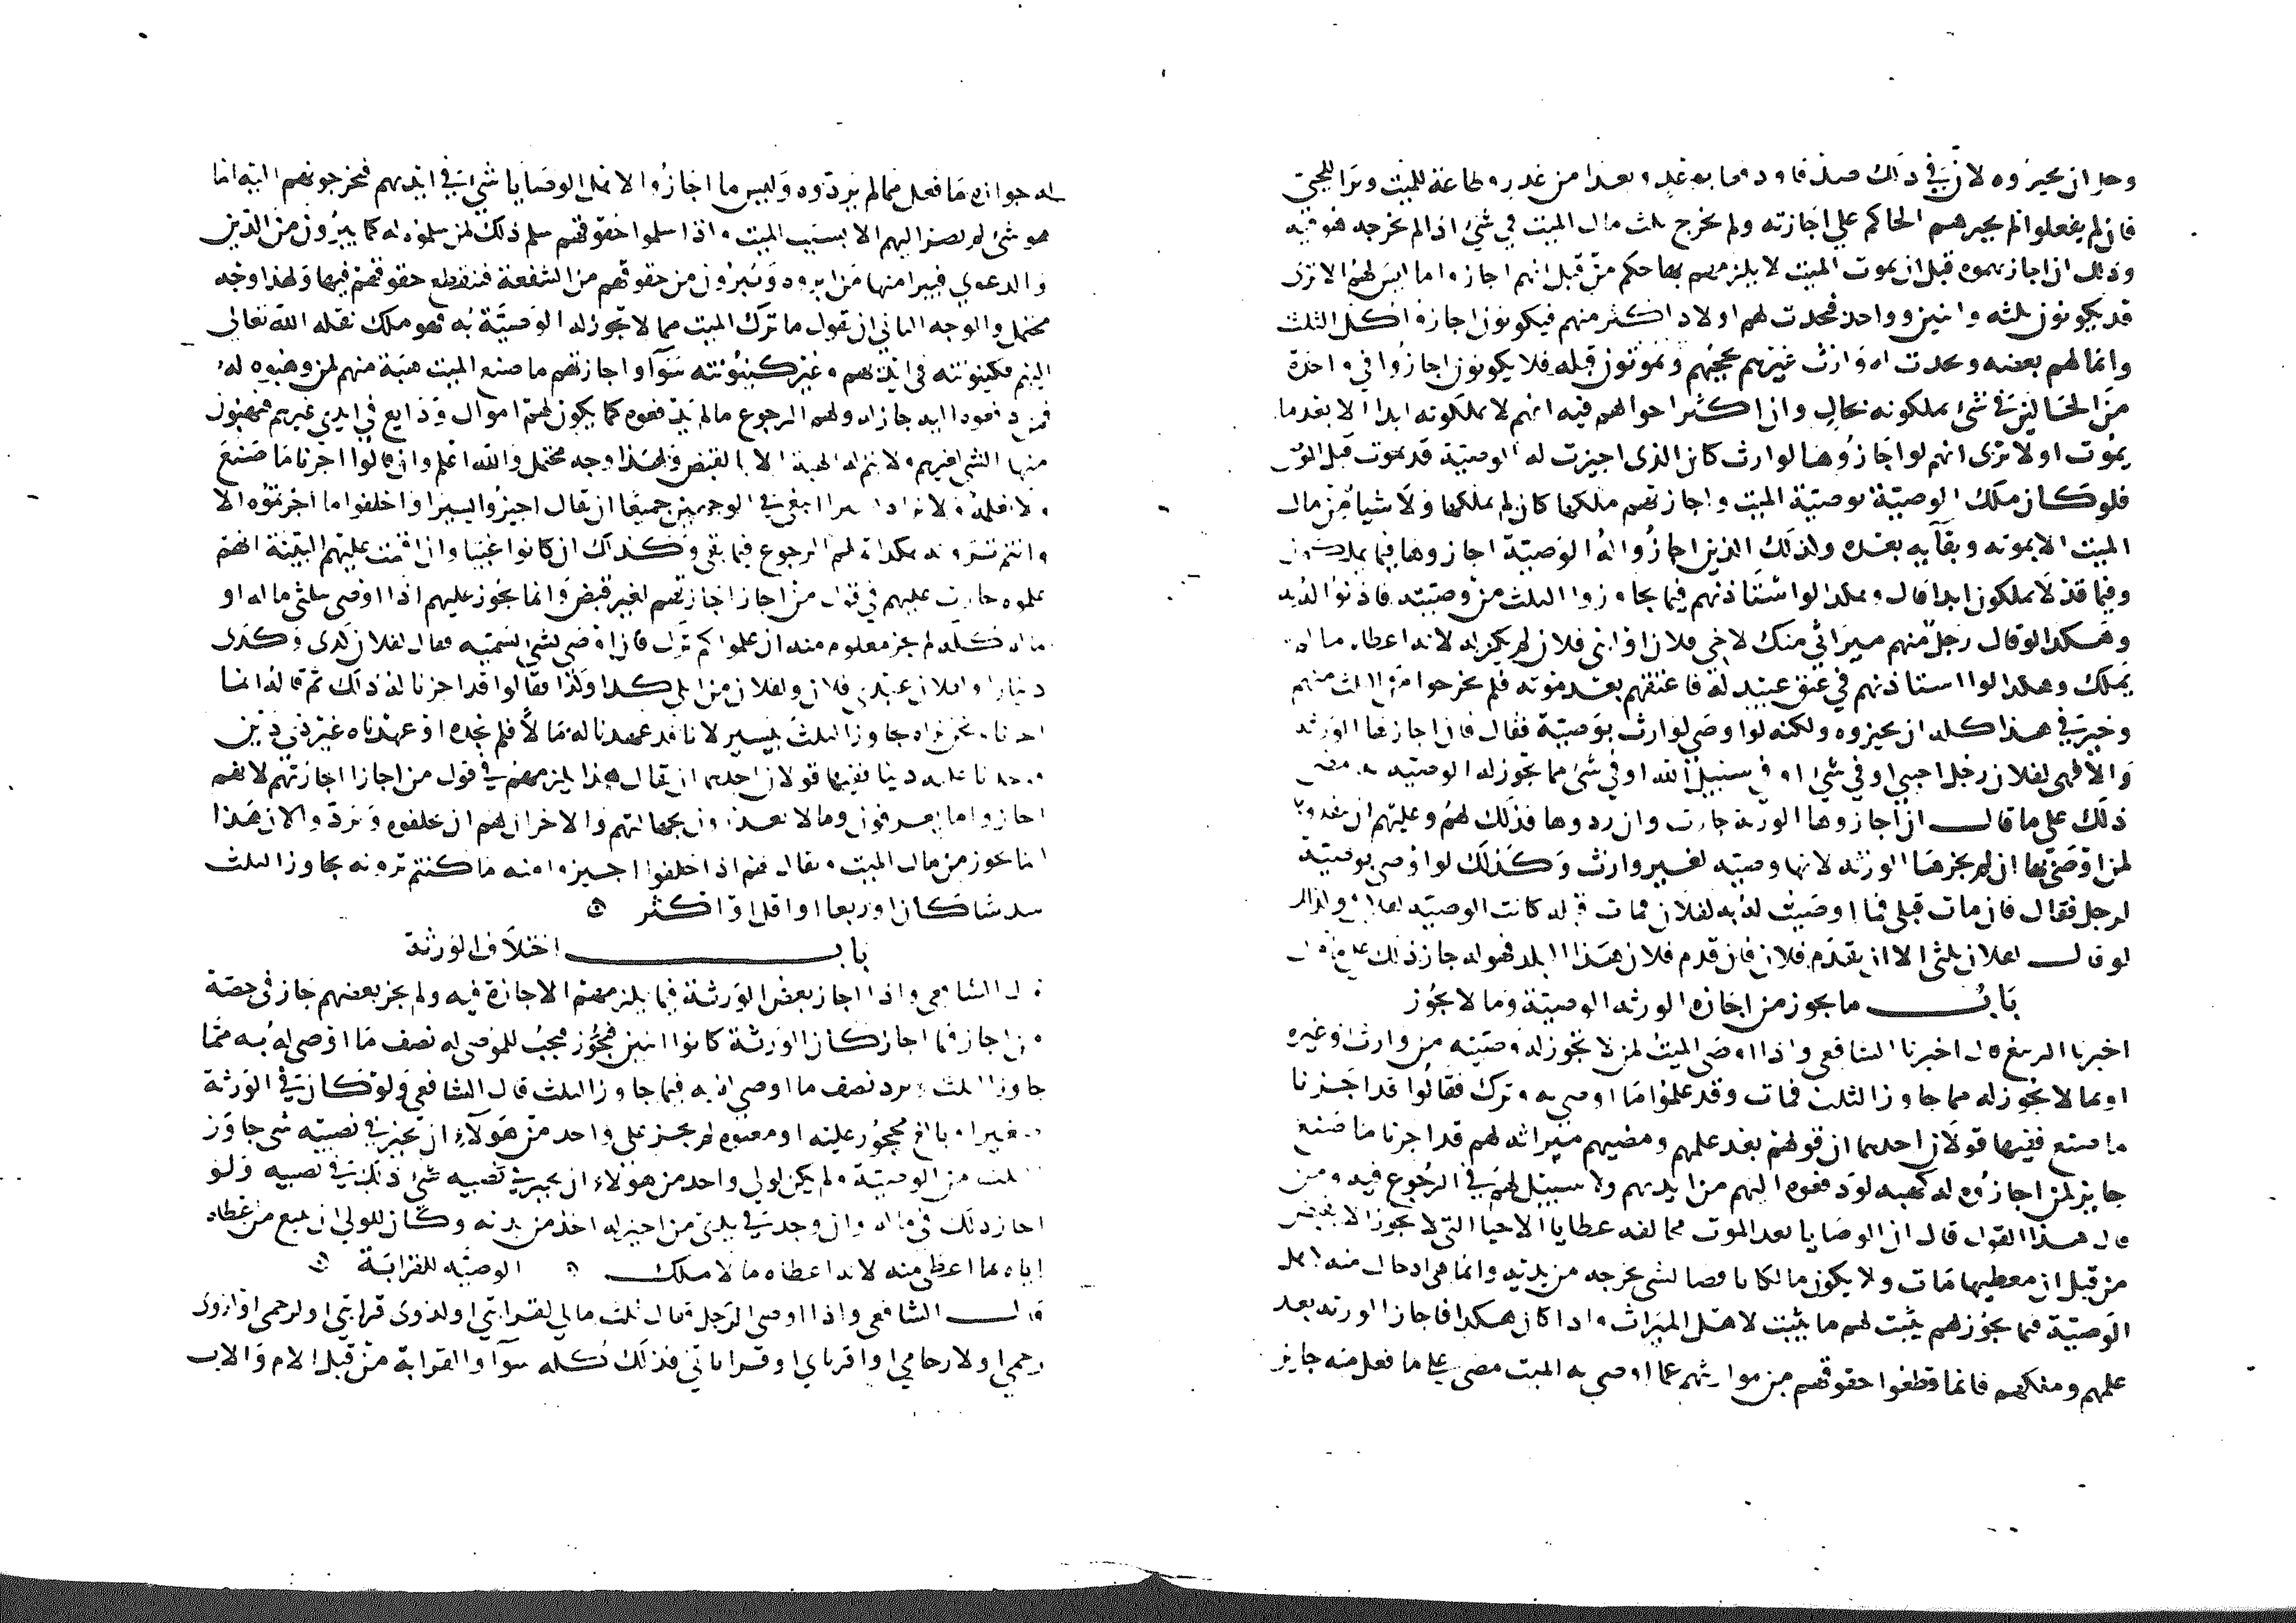 وحل ان يجيزوه لان في ذلك صدقا ووفا بوعد وبعدا من غدر وطاعة للميت وبرا للحي
فان لم يفعلوا لم يجبرهم الحاكم علي اجازته ولم يخرج ثلث مال الميت في شي اذا لم يخرجه هو فيه
وذلك ان اجازتهموه قبل ان يموت الميت لا يلزمهم بها حكم من قبل انهم اجازوا ما ليس لهم الا ترى
قد يكونون ثلثه واثنين وواحد فتحدث لهم اولاد اكثر منهم فيكونون اجازوا كل الثلث
وانما لهم بعضه ويحدث له وارث غيرهم يحجبهم ويموتون قبله فلا يكونون اجازوا في واحدة
من الحالين في شي يملكونه بحال وان اكثر احوالهم فيه انهم لا يملكونه ابدا الا بعد ما
يموت اولا ترى انهم لو اجازوها لوارث كان الذى اجيزت له الوصية قد يموت قبل الموصي
فلو كان ملك الوصية بوصية الميت واجازتهم ملكها كان لم يملكها ولا شيا من مال
الميت الا بموته وبقايه بعده وكذلك الذين اجازوا له الوصية اجازوها فيما يملكون
وفيما قد لا يملكون ابدا قال وهكذا لو استاذنهم فيما يجاوز الثلث من وصيته فاذنوا له به
وهكذا لو قال رجل منهم ميراثي منك لاخي فلان او لبني فلان لم يكن له لانه اعطاه ما لم
يملك وهكذا لو استاذنهم في عتق عبيد له فاعتقهم بعد موته فلم يخرجوا من الثلث
وخير في هذا كله ان يجيزوه ولكنه لو اوصى لوارث بوصية فقال فان اجازها الورثه
والا فهى لفلان رجل اجنبي او في سبيل الله او في شي مما تجوز له الوصيه به مضى
ذلك على ما قال ان اجازوها الورثة جازت وان ردوها فذلك لهم وعليهم ان ينفذوها
لمن اوصى بها ان لم يجزها الورثه لانها وصيه لغير وارث وكذلك لو اوصى بوصيه
لرجل فقال فان مات قبلي فما اوصيت له به لفلان فمات قبله كانت الوصيه لفلان وكذلك
لو قال لفلان ثلثى الا ان يقدم فلان فان قدم فلان هذا البلد فهو له جاز ذلك على ما قال
باب ما يجوز من اجازه الورثه الوصية وما لا يجوز
اخبرنا الربيع قال اخبرنا الشافعى واذا اوصى الميت لمن لا تجوز له وصيته من وارث وغيره
او بما لا تجوز له مما جاوز الثلث فمات وقد علموا ما اوصى به وترك فقالوا قد اجزنا
ما صنع ففيها قولان احدهما ان قولهم بعد علمهم ومصير ميراثه لهم قد اجزنا ما صنع
جايز لمن اجازوه له كهبته لو دفعوه اليهم من ايديهم ولا سبيل لهم في الرجوع فيه ومن
قال هذا القول قال ان الوصايا بعد الموت مخالفه عطايا الاحيا التى لا تجوز الا بقبض
من قبل ان معطيها مات ولا يكون مالكا قابضا لشي يخرجه من يديه وانما هى ادخال منه لاهل
الوصية فيما يجوز لهم يثبت لهم ما يثبت لاهل الميراث واذا كان هكذا فاجاز الورثه بعد
علمهم وملكهم فانما قطعوا حقوقهم من مواريثهم عما اوصى به الميت مضى على ما فعل منه جايز
له جوازه ما فعل مما لم يردوه وليس ما اجازوا لاهل الوصايا بشي في ايديهم فيخرجونهم اليه انما
هو شي لم يصر اليهم الا بسبب الميت واذا سلموا حقوقهم سلم ذلك لمن سلموه له كما يبرون من الدين
والدعوي فيبرا منها من ابروه ويبرون من حقوقهم من الشفعة فتنقطع حقوقهم فيها ولهذا وجه
محتمل والوجه الثاني ان يقول ما ترك الميت مما لا تجوز له الوصية به فهو ملك نقله الله تعالى
اليهم فكينونته فى ايديهم وغير كينونته سوآ واجازتهم ما صنع الميت هبة منهم لمن وهبوه له
فمن دفعوه اليه جاز له ولهم الرجوع ما لم يدفعوه كما يكون لهم اموال ودايع في ايدي غيرهم فيهبون
منها الشي لغيرهم ولا يتم له الهبة الا بالقبض ولهذا وجه محتمل والله اعلم وان قالوا اجزنا ما صنع
ولا نعلمه وكنا نراه يسيرا انبغى في الوجهين جميعا ان يقال اجيزوا يسيرا واحلفوا ما اجزتموه الا
وانتم ترونه هكذا ثم لهم الرجوع فيما بقى وكذلك ان كانوا غيبا وان اقيمت عليهم البينة انهم
علموه جازت عليهم في قول من اجاز اجازتهم لغير قبض وانما يجوز عليهم اذا اوصى بثلثى ماله او
ماله كله لم يجز معلومه منه ان علموا كم ترك فان اوصى بشي يسميه فقال لفلان كذى وكذى
دينارا ولفلان عبدي فلان ولفلان من ابلي كذا وكذا فقالوا قد اجزنا له ذلك ثم قالوا انما
اجزنا ونحن نراه جاوز الثلث بيسير لانا قد عهدنا له مالا فلم نجده او عهدناه غير ذي دين
ووجدنا عليه دينا ففيها قولان احدهما ان يقال هذا يلزمهم في قول من اجاز اجازتهم لانهم
اجازوا ما يعرفون وما لا يعذرون بجهالتهم والاخر ان لهم ان يحلفوه ويرد والان هذا
انما يجوز من مال الميت ويقال لهم اذا احلفوا اجيزوا منه ما كنتم ترونه يجاوز الثلث
سدسا كان او ربعا او اقل او اكثر
باب اختلاف الورثة
قال الشافعى واذا اجاز بعض الورثة فيما يلزمهم الاجازة فيه ولم يجز بعضهم جاز فى حصة
من اجاز فما اجاز كان الورثة كانوا اثنين فيجوز فيجب للموصى له نصف ما اوصى له به مما
جاوز الثلث ويرد نصف ما اوصى له به فيما جاوز الثلث قال الشافعى ولو كان في الورثة
صغير او بالغ محجور عليه او معتوه لم يجز على واحد من هولآء ان يجيز في نصيبه شى جاوز
الثلث من الوصية ولم يكن لولي واحد من هولاء ان يجيز في نصيبه شي ذلك في نصيبه ولو
اجاز ذلك فى ماله وان وجد في يدى من اجيز له اخذ من يديه وكان للولي ان يتبع من اعطاه
اياه بما اعطى منه لانه اعطاه ما لا يملك الوصيه للقرابة
قال الشافعى واذا اوصى الرجل فقال ثلث مالي لقرابتي او لذوى قرابتي او لرحمى او لذوى
رحمي او لارحامي او اقربايي او قراباتي فذلك كله سوآ والقرابة من قبل الام والاب